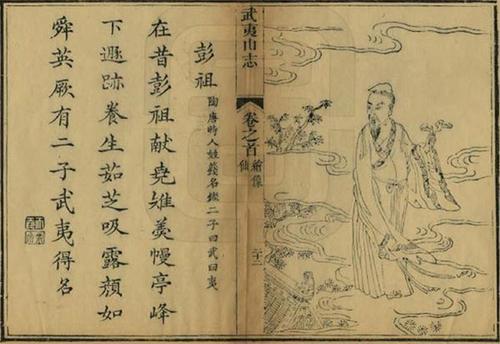 武夷山志
卷之首
繪像
仙
彭祖
陶唐時人姓籛名鏗二子曰武曰夷
在昔彭祖献堯雉羹幔亭峰
下遯跡養生茹芝吸露顏如
舜英厥有二子武夷得名